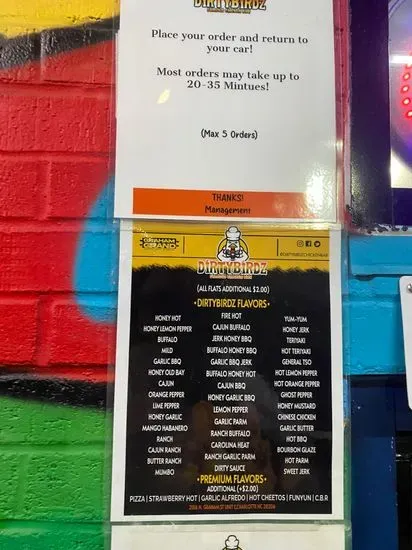 DIRTYBIRDZ
Place your order and return to
your car!
Most orders may take up to
20-35 Mintues!
(Max 5 Orders)
THANKS!
Management
GRAHAM
GRAND
DIRTYBIRDZ
(ALL FLATS ADDITIONAL $2.00)
•DIRTYBIRDZ FLAVORS•
HONEY HOT
HONEY LEMON PEPPER
BUFFALO
MILD
GARLIC BBQ
HONEY OLD BAY
CAJUN
ORANGE PEPPER
LIME PEPPER
HONEY GARLIC
MANGO HABANERO
RANCH
CAJUN RANCH
BUTTER RANCH
MUMBO
FIRE HOT
CAJUN BUFFALO
JERK HONEY BBQ
BUFFALO HONEY BBQ
GARLIC BBQ JERK
BUFFALO HONEY HOT
CAJUN BBQ
HONEY GARLIC BBQ
LEMON PEPPER
GARLIC PARM
RANCH BUFFALO
CAROLINA HEAT
RANCH GARLIC PARM
DIRTY SAUCE
YUM-YUM
HONEY JERK
TERIYAKI
HOT TERIYAKI
GENERAL TSO
HOT LEMON PEPPER
HOT ORANGE PEPPER
GHOST PEPPER
HONEY MUSTARD
CHINESE CHICKEN
GARLIC BUTTER
HOT BBQ
BOURBON GLAZE
HOT PARM
SWEET JERK
•PREMIUM FLAVORS•
ADDITIONAL (+$2.00)
PIZZA | STRAWBERRY HOT | GARLIC ALFREDO | HOT CHEETOS | FUNYUN | C.B.R